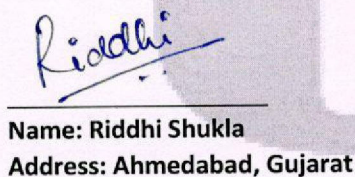 Riddhi
Name: Riddhi Shukla
Address: Ahmedabad, Gujarat